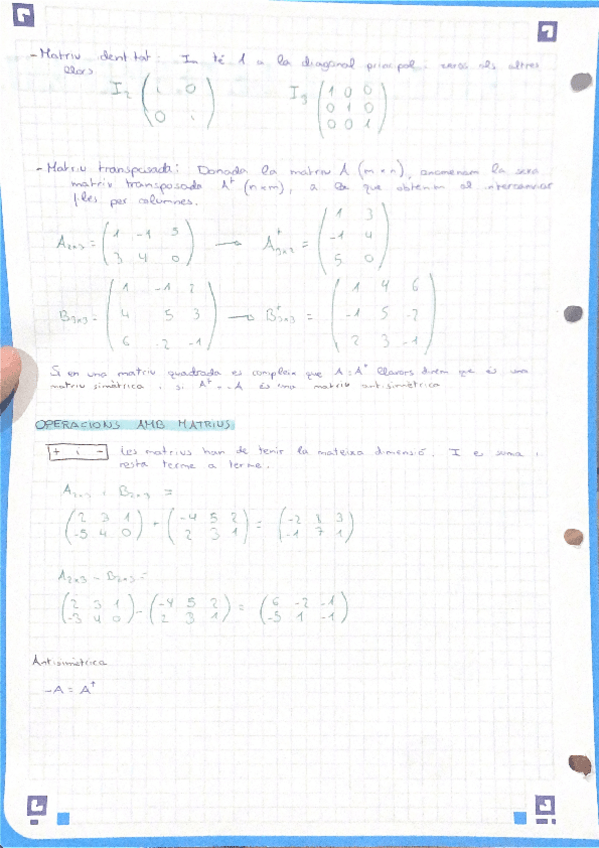 - Matriu identitat: In té 1 a la diagonal principal i zeros als altres
llocs
I2 ( 1 0 ) I3 ( 1 0 0 )
( 0 1 ) ( 0 1 0 )
( 0 0 1 )
- Matriu transposada: Donada la matriu A (m x n), anomenem la seva
matriu transposada A^t (n x m), a la que obtenim al intercanviar
files per columnes.
A2x3 = ( 1 -1 5 ) → A^t3x2 = ( 1 3 )
( 3 4 0 ) ( -1 4 )
( 5 0 )
B3x3 = ( 1 -1 2 ) → B^t3x3 = ( 1 4 6 )
( 4 5 3 ) ( -1 5 -2 )
( 6 -2 -1 ) ( 2 3 -1 )
Si en una matriu quadrada es compleix que A = A^t llavors direm que és una
matriu simètrica i si A^t = -A és una matriu antisimètrica
OPERACIONS AMB MATRIUS
+ i - Les matrius han de tenir la mateixa dimensió. I es suma i
resta terme a terme.
A2x3 + B2x3 =
( 2 3 1 ) + ( -4 5 2 ) = ( -2 8 3 )
( -5 4 0 ) ( 2 3 1 ) ( -1 7 1 )
A2x3 - B2x3 =
( 2 3 1 ) - ( -4 5 2 ) = ( 6 -2 -1 )
( -3 4 0 ) ( 2 3 1 ) ( -5 1 -1 )
Antisimètrica
-A = A^t